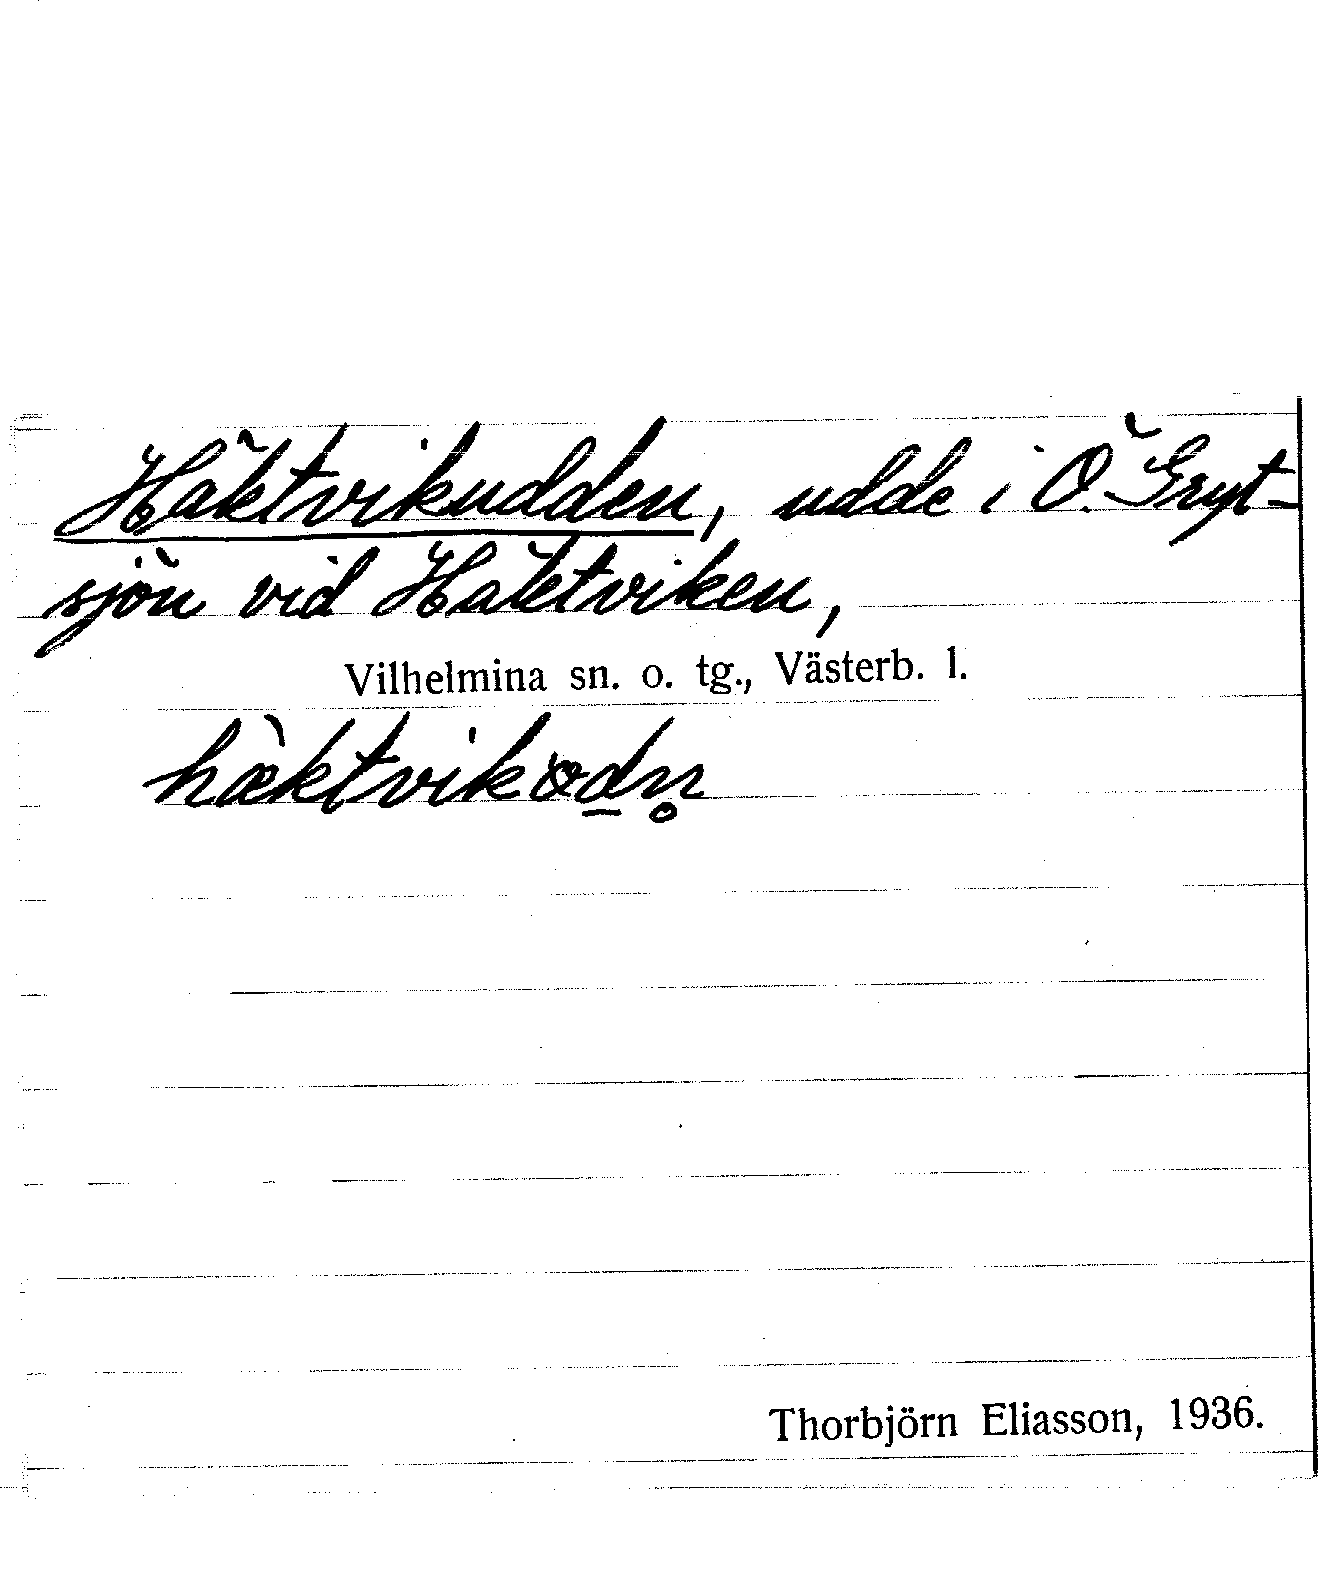 Häktvikudden, udde i Ö. Gryt-
sjön vid Häktviken,
Vilhelmina sn. o. tg., Västerb. l.
hæ̀ktvikωd̲n̥
Thorbjörn Eliasson, 1936.